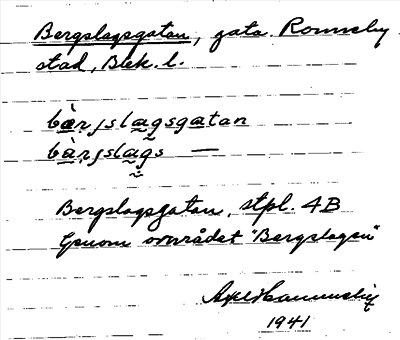 Bergslagsgatan, gata. Ronneby
stad, Blek. l.
bàrjslagsgatan
bàrjslags —
Bergslagsgatan, stpl. 4B
Genom området "Bergslagen"
Axel
1941